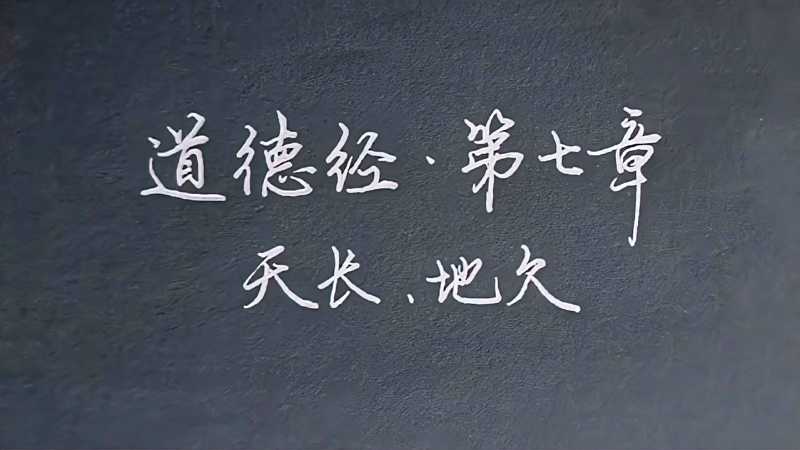 道德经·第七章
天长、地久